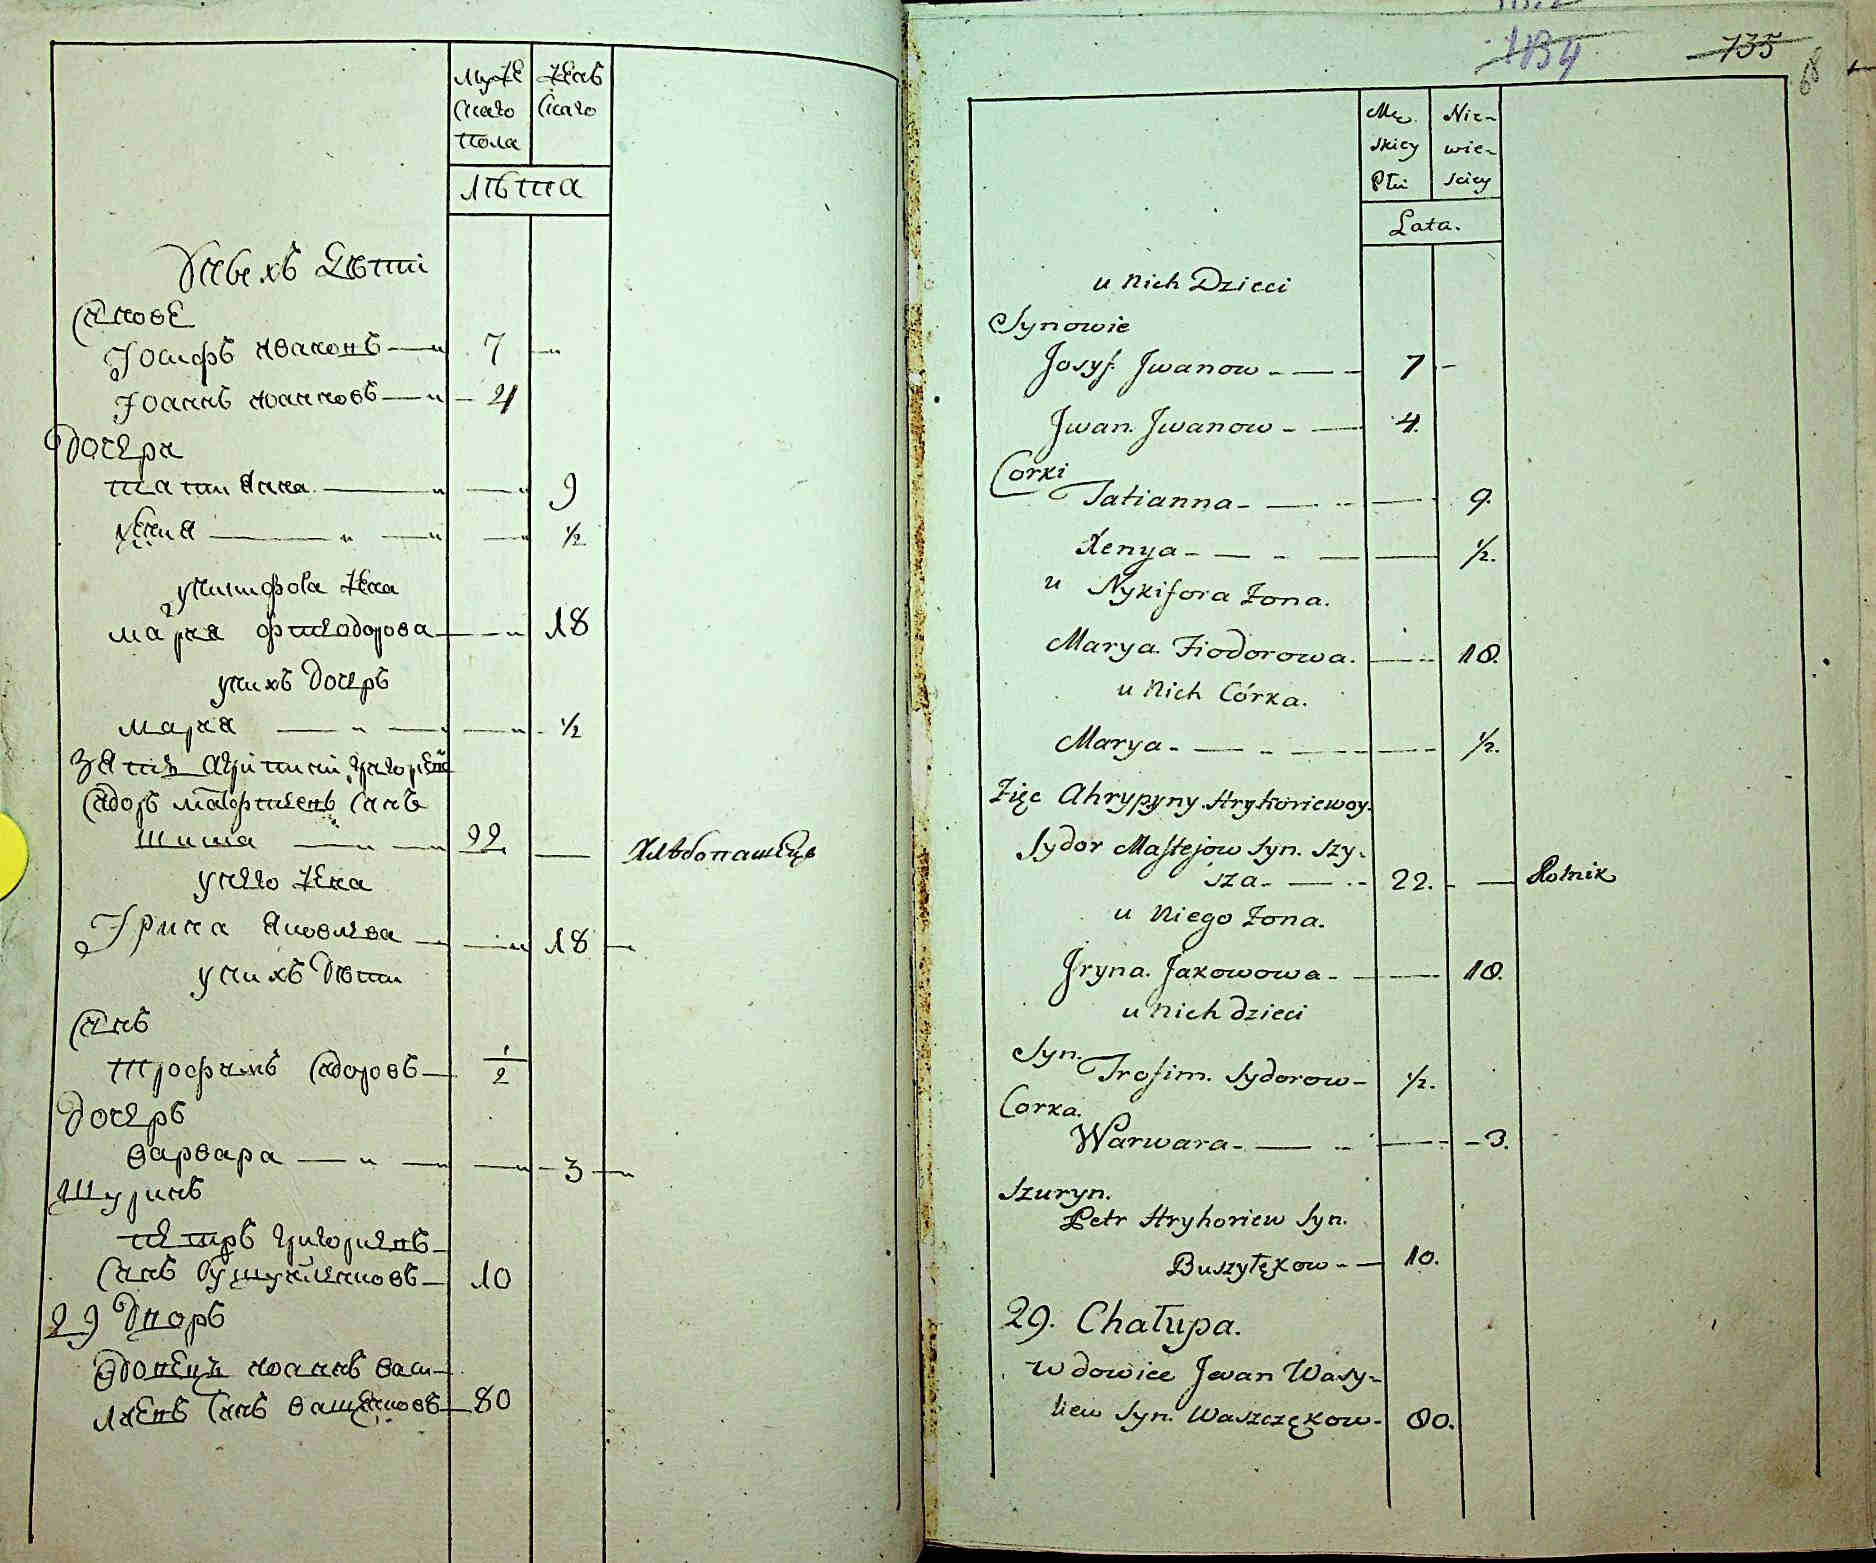 Муже жѣнъ
скаго скаго
пола
лѣта
У нихъ дѣти
Сынове
Іосифъ Ивановъ 7
Іоаннъ Ивановъ 4
Дочери
Татияна 9
½
жена
Марья Фтеодорова 18
у нихъ дочерь
Марья ½
Зять
Сидоръ сынъ
Шиша 22 Хлѣбопашецъ
у него жена
Ирина Яковлева 18
у нихъ дѣти
Сынъ
Трофимъ Сидоровъ ½
Дочерь
Варвара 3
Шуринъ
Петръ Григориевъ
сынъ 10
29 Дворъ
Вдовецъ Иванъ Васи-
лиевъ сынъ Ващенковъ 80
1134 735
68
Mę- Nie-
skiey wie-
Płci sciey
Lata.
u Nich Dzieci
Synowie
Josyf. Jwanow 7
Jwan. Jwanow 4.
Corki
Tatianna 9.
Xenya ½.
u Nykifora Żona.
Marya. Fiodorowa. 18.
u Nich Córka.
Marya ½.
Zięc Ahrypyny Hryhoriewoy.
Sydor Maftejow Syn. Szy-
sza 22. Rolnik
u Niego Żona.
Jryna. Jakowowa 18.
u Nich dzieci
Syn.
Trofim. Sydorow ½.
Corka.
Warwara 3.
Szuryn.
Petr Hryhoriew Syn.
Buszyłękow 10.
29. Chałupa.
wdowiec Jwan Wasy-
liew Syn. Waszczękow 80.